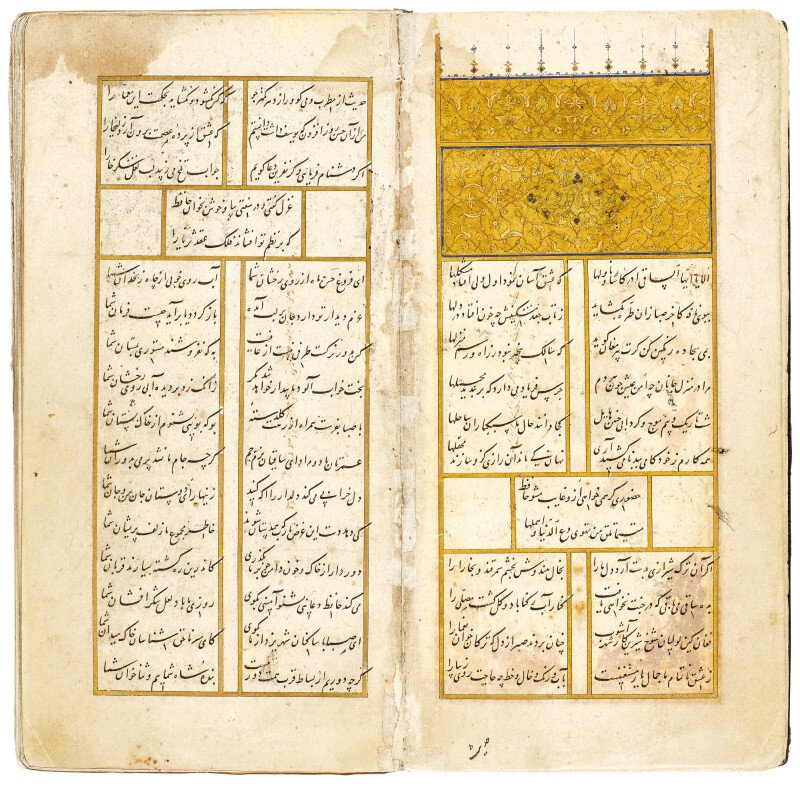 الا یا ایها الساقی ادر کاسا و ناولها که عشق آسان نمود اول ولی افتاد مشکلها
ببوی نافه کاخر صبا زان طره بگشاید ز تاب جعد مشکینش چه خون افتاد در دلها
بمی سجاده رنگین کن گرت پیر مغان گوید که سالک بیخبر نبود ز راه و رسم منزلها
مرا در منزل جانان چه امن عیش چون هر دم جرس فریاد میدارد که بربندید محملها
شب تاریک و بیم موج و گردابی چنین هایل کجا دانند حال ما سبکباران ساحلها
همه کارم ز خود کامی ببدنامی کشید آری نهان کی ماند آن رازی کزو سازند محفلها
حضوری گر همی خواهی ازو غایب مشو حافظ
متی ما تلق من تهوی دع الدنیا و اهملها
اگر آن ترک شیرازی بدست آرد دل ما را بخال هندوش بخشم سمرقند و بخارا را
بده ساقی می باقی که در جنت نخواهی یافت کنار آب رکناباد و گلگشت مصلی را
فغان کین لولیان شوخ شیرین کار شهرآشوب چنان بردند صبر از دل که ترکان خوان یغما را
ز عشق ناتمام ما جمال یار مستغنیست بآب و رنگ و خال و خط چه حاجت روی زیبا را
حدیث از مطرب و می گو و راز دهر کمتر جو که کس نگشود و نگشاید بحکمت این معما را
من از آن حسن روز افزون که یوسف داشت دانستم که عشق از پرده عصمت برون آرد زلیخا را
اگر دشنام فرمایی و گر نفرین دعا گویم جواب تلخ می زیبد لب لعل شکرخا را
غزل گفتی و در سفتی بیا و خوش بخوان حافظ
که بر نظم تو افشاند فلک عقد ثریا را
ای فروغ حسن ماه از روی رخشان شما آب روی خوبی از چاه زنخدان شما
عزم دیدار تو دارد جان بر لب آمده باز گردد یا برآید چیست فرمان شما
کس بدور نرگست طرفی نبست از عافیت به که نفروشند مستوری بمستان شما
بخت خواب آلود ما بیدار خواهد شد مگر زانکه زد بر دیده آبی روی رخشان شما
با صبا بفرست همراه از رخت گلدسته بو که بویی بشنویم از خاک بستان شما
عمرتان باد و مراد ای ساقیان بزم جم گرچه جام ما نشد پر می بدوران شما
دل خرابی می کند دلدار را آگه کنید زینهار ای دوستان جان من و جان شما
کی دهد دست این غرض یارب که همدستان شوند خاطر مجموع ما زلف پریشان شما
دور دار از خاک و خون دامن چو بر ما بگذری کاندرین ره کشته بسیارند قربان شما
می کند حافظ دعایی بشنو آمینی بگوی روزی ما باد لعل شکرافشان شما
ای صبا با ساکنان شهر یزد از ما بگوی کای سر ناحق شناسان خاک میدان شما
گرچه دوریم از بساط قرب همت دور نیست بنده شاه شماییم و ثناخوان شما